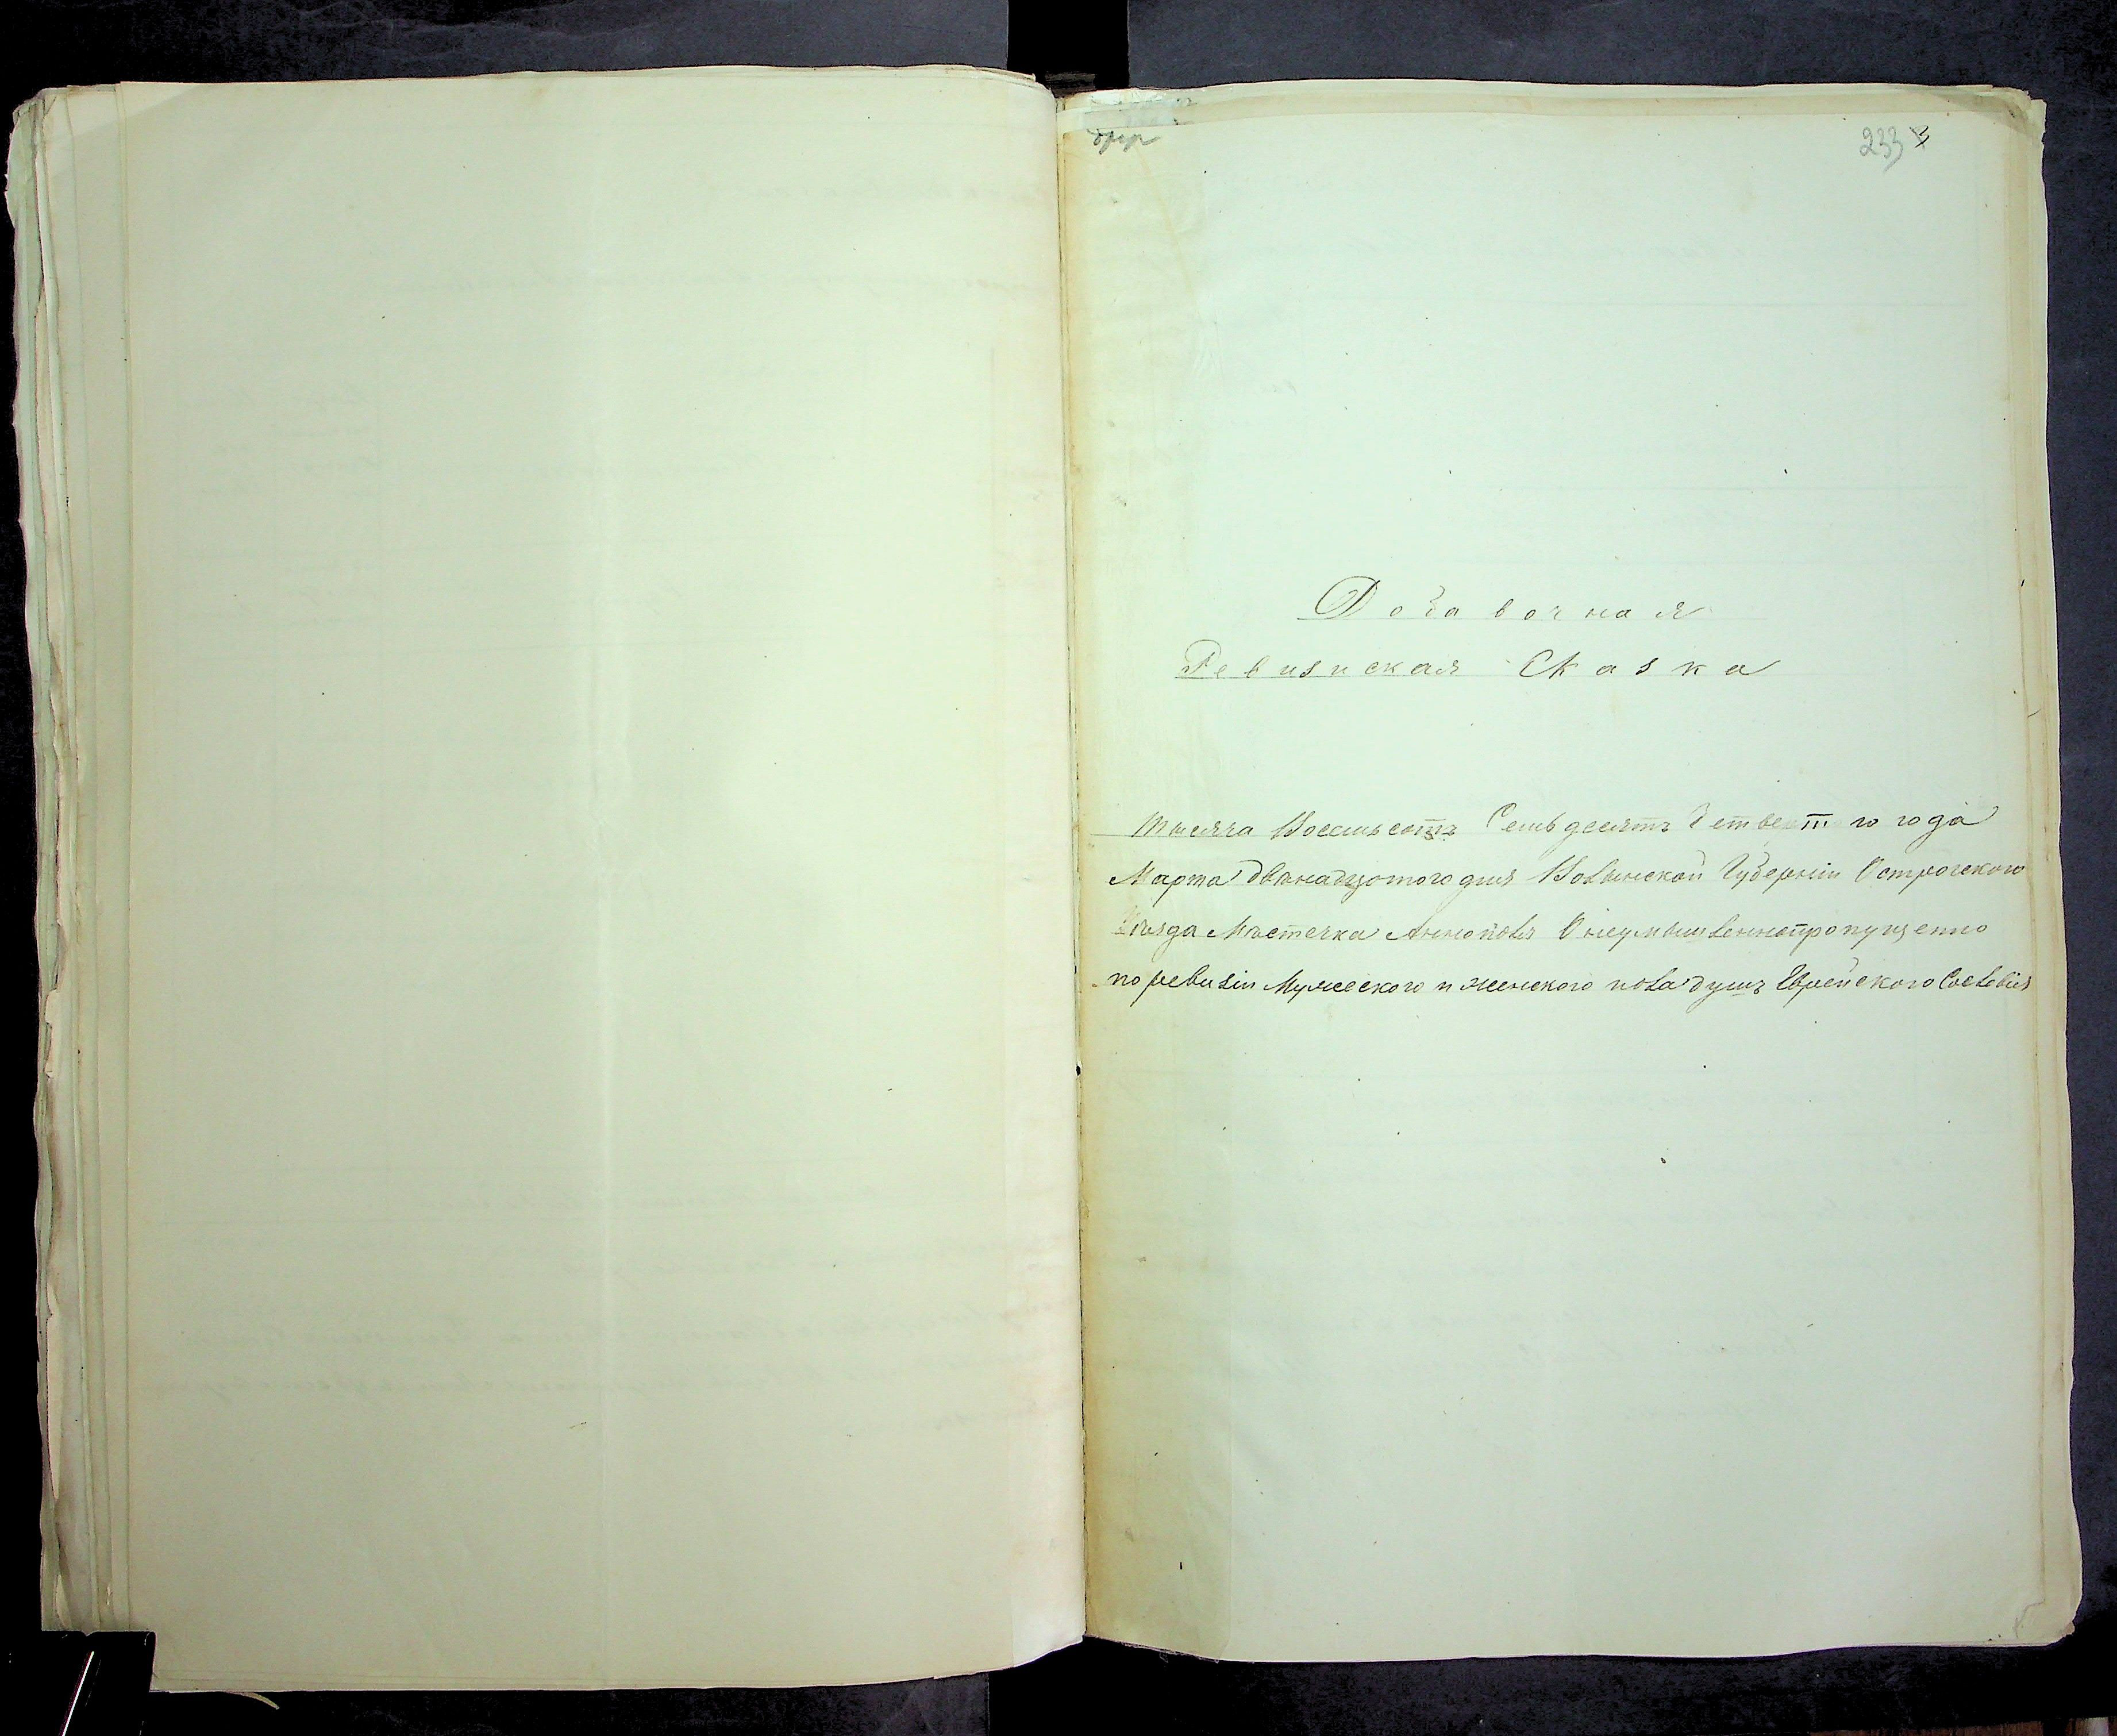 233 3
Добавочная
Ревизская Сказка
Тысяча Восемьсотъ Семьдесятъ Четвертого года
Марта двѣнадцатого дня Волынской Губерніи Острогского
Уѣзда Мѣстечка Аннополя О неумышленно пропущенно
по ревизіи Мужеского и женского пола душъ Еврейского Сословія